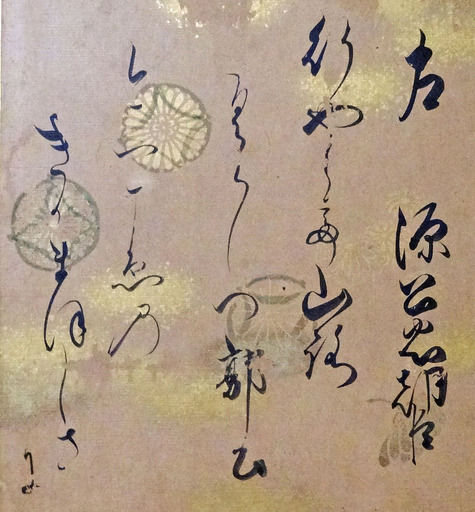 左 源公忠朝臣
行やらて山路
くらしつ郭公
今一こゑの
きかまほしさ
に